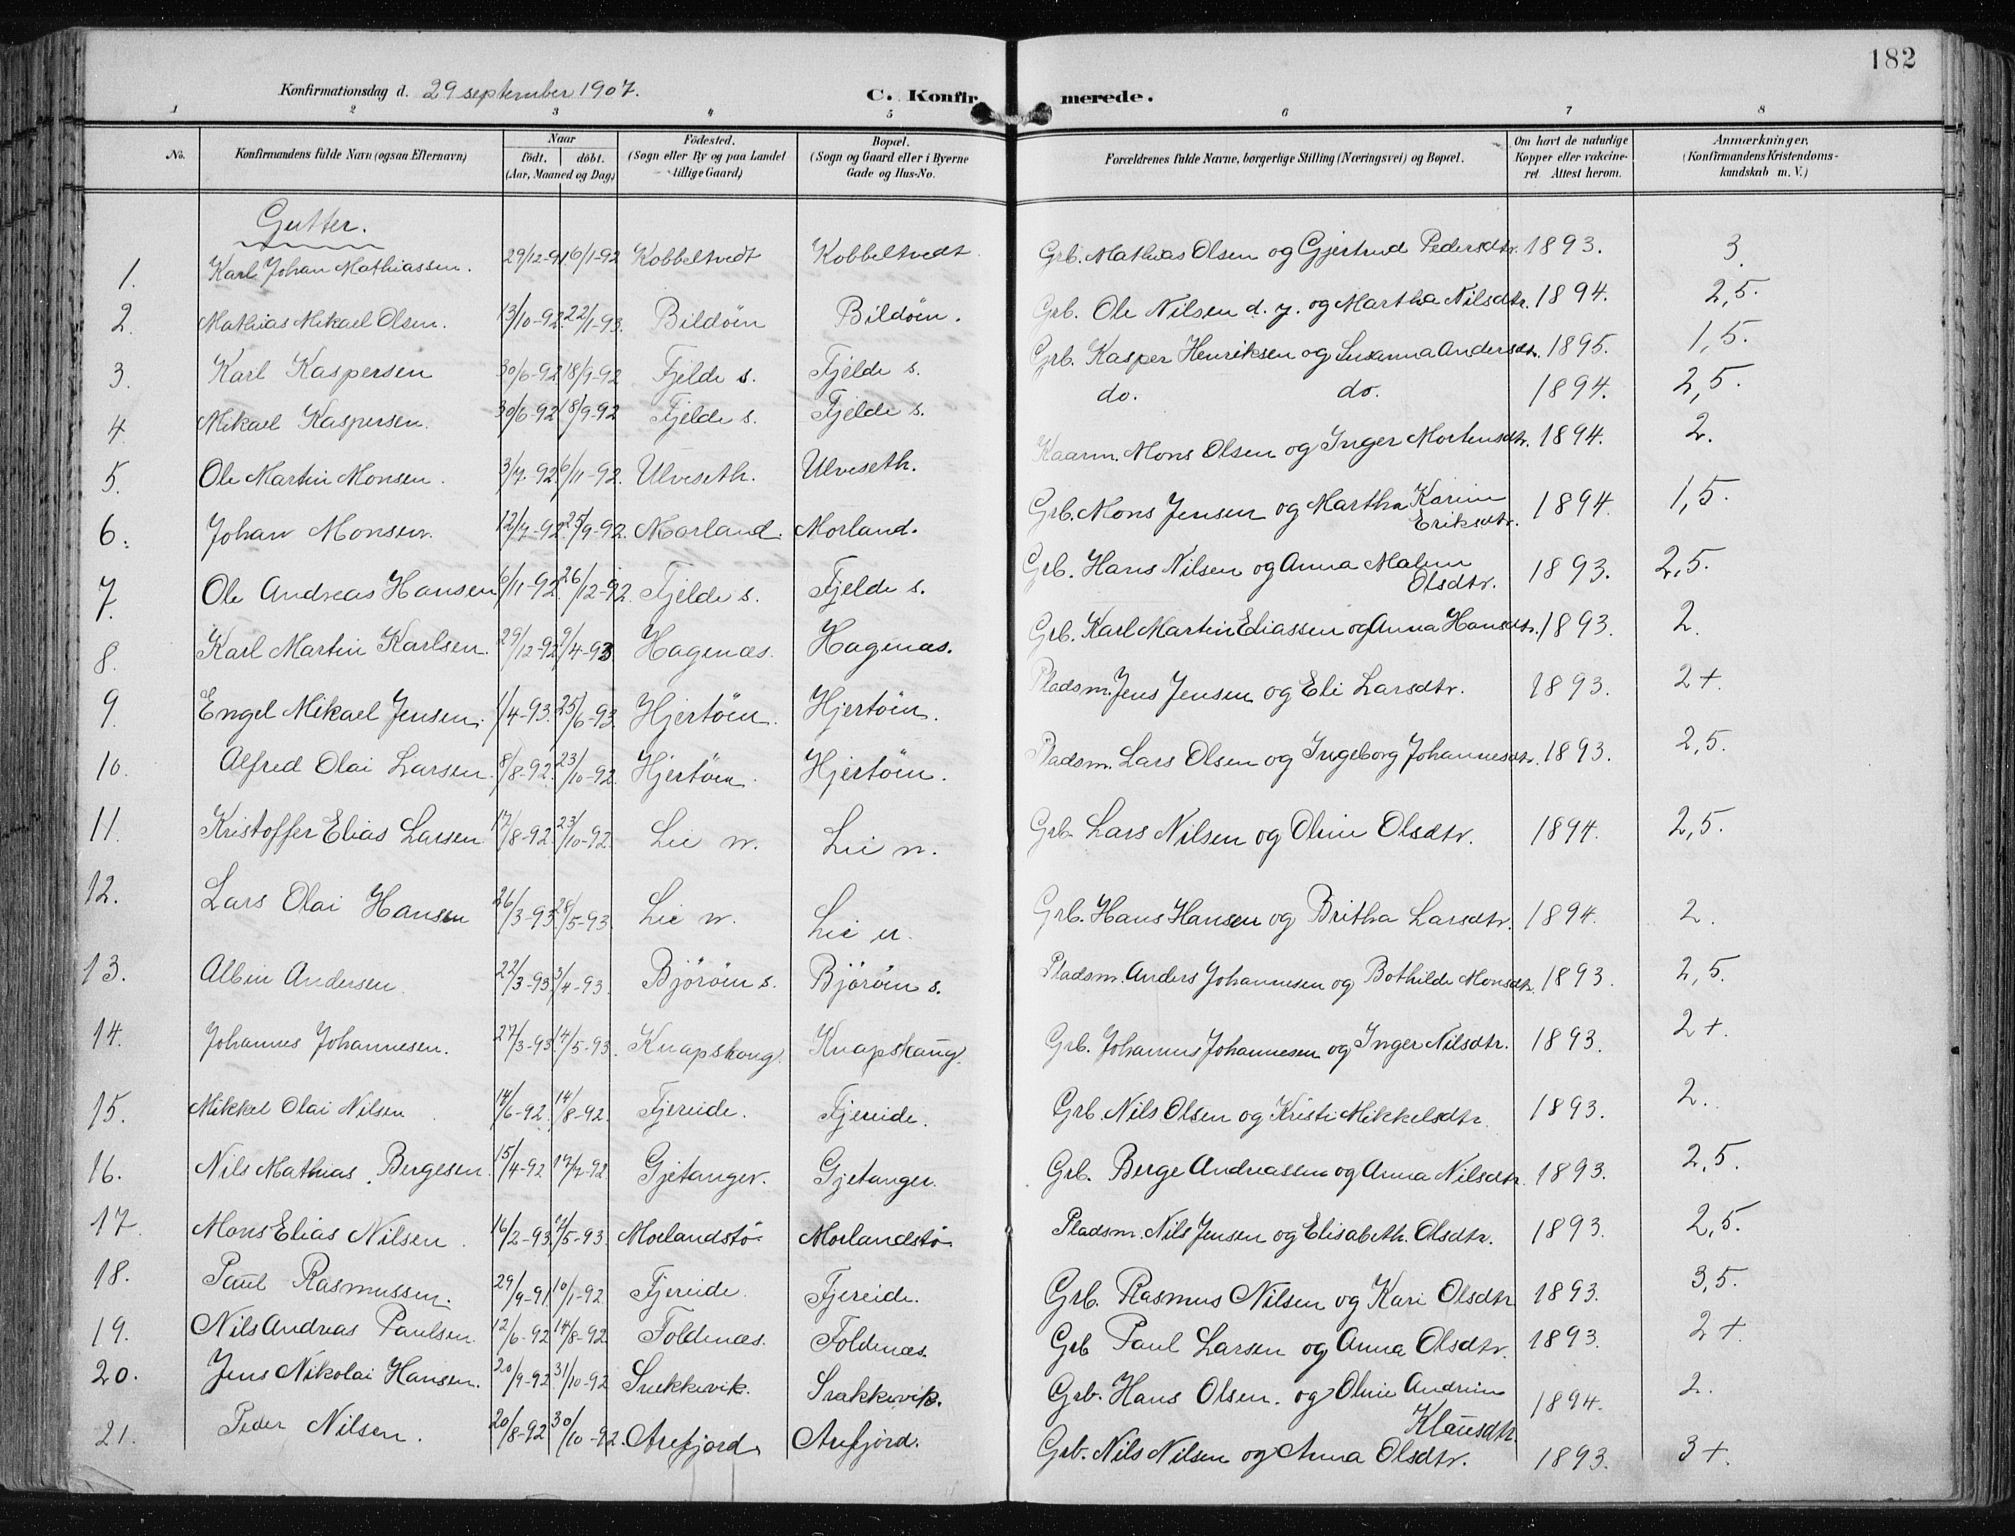 182
Konfirmationsdag d. 29 september 1907. C. Konfirmerede.
1 2 3 4 5 6 7 8
No. Konfirmandens fulde Navn (ogsaa Efternavn) Naar født. døbt. (Aar, Maaned og Dag) Födested. (Sogn eller By og paa Landet tillige Gaard) Bopæl. (Sogn og Gaard eller i Byerne Gade og Hus-No. Forældrenes fulde Navne, borgerlige Stilling (Næringsvei) og Bopæl. Om havt de naturlige Kopper eller vakcineret Attest herom. Anmærkninger. (Konfirmandens Kristendomskundskab m. V.)
Gutter.
1. Karl Johan Mathiassen. 29/12-91 6/1-92 Kobbeltvedt Kobbeltvedt Grb. Mathias Olsen og Gjertrud Pedersdtr. 1893. 3.
2. Mathias Mikael Olsen. 13/10-92. 22/1-93. Bildöin Bildöin. Grb. Ole Nilsen d. y. og Martha Nilsdtr. 1894. 2,5.
3. Karl Kaspersen 30/6-92 18/9-92 Fjelde s. Fjelde s. Grb. Kasper Henriksen og Susanna Andersdtr. 1895. 1,5.
4. Mikael Kaspersen. 30/6-92 18/9-92 Fjelde s. Fjelde s. do. do. 1894. 2,5.
5. Ole Martin Monsen. 3/7-92 6/11-92. Ulveseth. Ulveseth. Kaarm. Mons Olsen og Inger Mortensdtr. 1894. 2.
6. Johan Monsen. 12/7-92. 25/9-92. Morland. Morland. Grb. Mons Jensen og Martha Karine Eriksdtr. 1894. 1,5.
7. Ole Andreas Hansen 6/11-92. 26/12-92. Fjelde s. Fjelde s. Grb. Hans Nilsen og Anna Malene Olsdtr. 1893. 2,5.
8. Karl Martin Karlsen. 29/12-92 9/4-93 Hagenæs. Hagenæs. Grb. Karl Martin Eliassen og Anna Hansdtr. 1893. 2.
9. Engel Mikael Jensen. 1/4-93. 25/6-93. Hjertöin. Hjertöin. Pladsm. Jens Jensen og Eli Larsdtr. 1893. 2+.
10. Alfred Olai Larsen. 8/8-92. 23/10-92. Hjertöin. Hjertöin. Pladsm. Lars Olsen og Ingeborg Johannesdtr. 1893. 2,5.
11. Kristoffer Elias Larsen 17/8-92. 23/10-92. Lie n. Lie n. Grb. Lars Nilsen og Oline Olsdtr. 1894. 2,5.
12. Lars Olai Hansen 26/3-93. 28/5-93. Lie n. Lie n. Grb. Hans Hansen og Britha Larsdtr. 1894. 2.
13. Albin Andersen. 22/3-93. 3/4-93. Björöin s. Björöin s. Pladsm. Anders Johannesen og Bothilde Monsdtr. 1893. 2,5.
14. Johannes Johannesen. 27/3-93. 14/5-93. Knapskoug. Knapskoug. Grb. Johannes Johannesen og Inger Nilsdtr. 1893. 2+.
15. Mikkel Olai Nilsen 14/6-92. 14/8-92. Fjereide. Fjereide. Grb. Nils Olsen og Kristi Mikkelsdtr. 1893. 2.
16. Nils Mathias Bergesen. 15/4-92 17/7-92. Gjetanger. Gjetanger. Grb. Berge Andreassen og Anna Nilsdtr. 1893. 2,5.
17. Mons Elias Nilsen. 16/2-93. 14/5-93. Morlandstö Morlandstö Pladsm. Nils Jensen og Elisabeth. Olsdtr. 1893. 2,5.
18. Paul Rasmussen. 29/9-91. 10/1-92. Fjereide. Fjereide. Grb. Rasmus Nilsen og Kari Olsdtr. 1893. 3,5.
19. Nils Andreas Paulsen. 12/6-92 14/8-92 Foldenæs. Foldenæs. Grb Paul Larsen og Anna Olsdtr. 1893. 2+.
20. Jens Nikolai Hansen. 20/9-92 31/10-92 Snekkevik. Snekkevik. Grb. Hans Olsen. og Oline Andrine Klausdtr. 1894. 2.
21. Peder Nilsen. 20/8-92 30/10-92. Arefjord. Arefjord. Grb. Nils Nilsen og Anna Olsdtr. 1893. 3+.